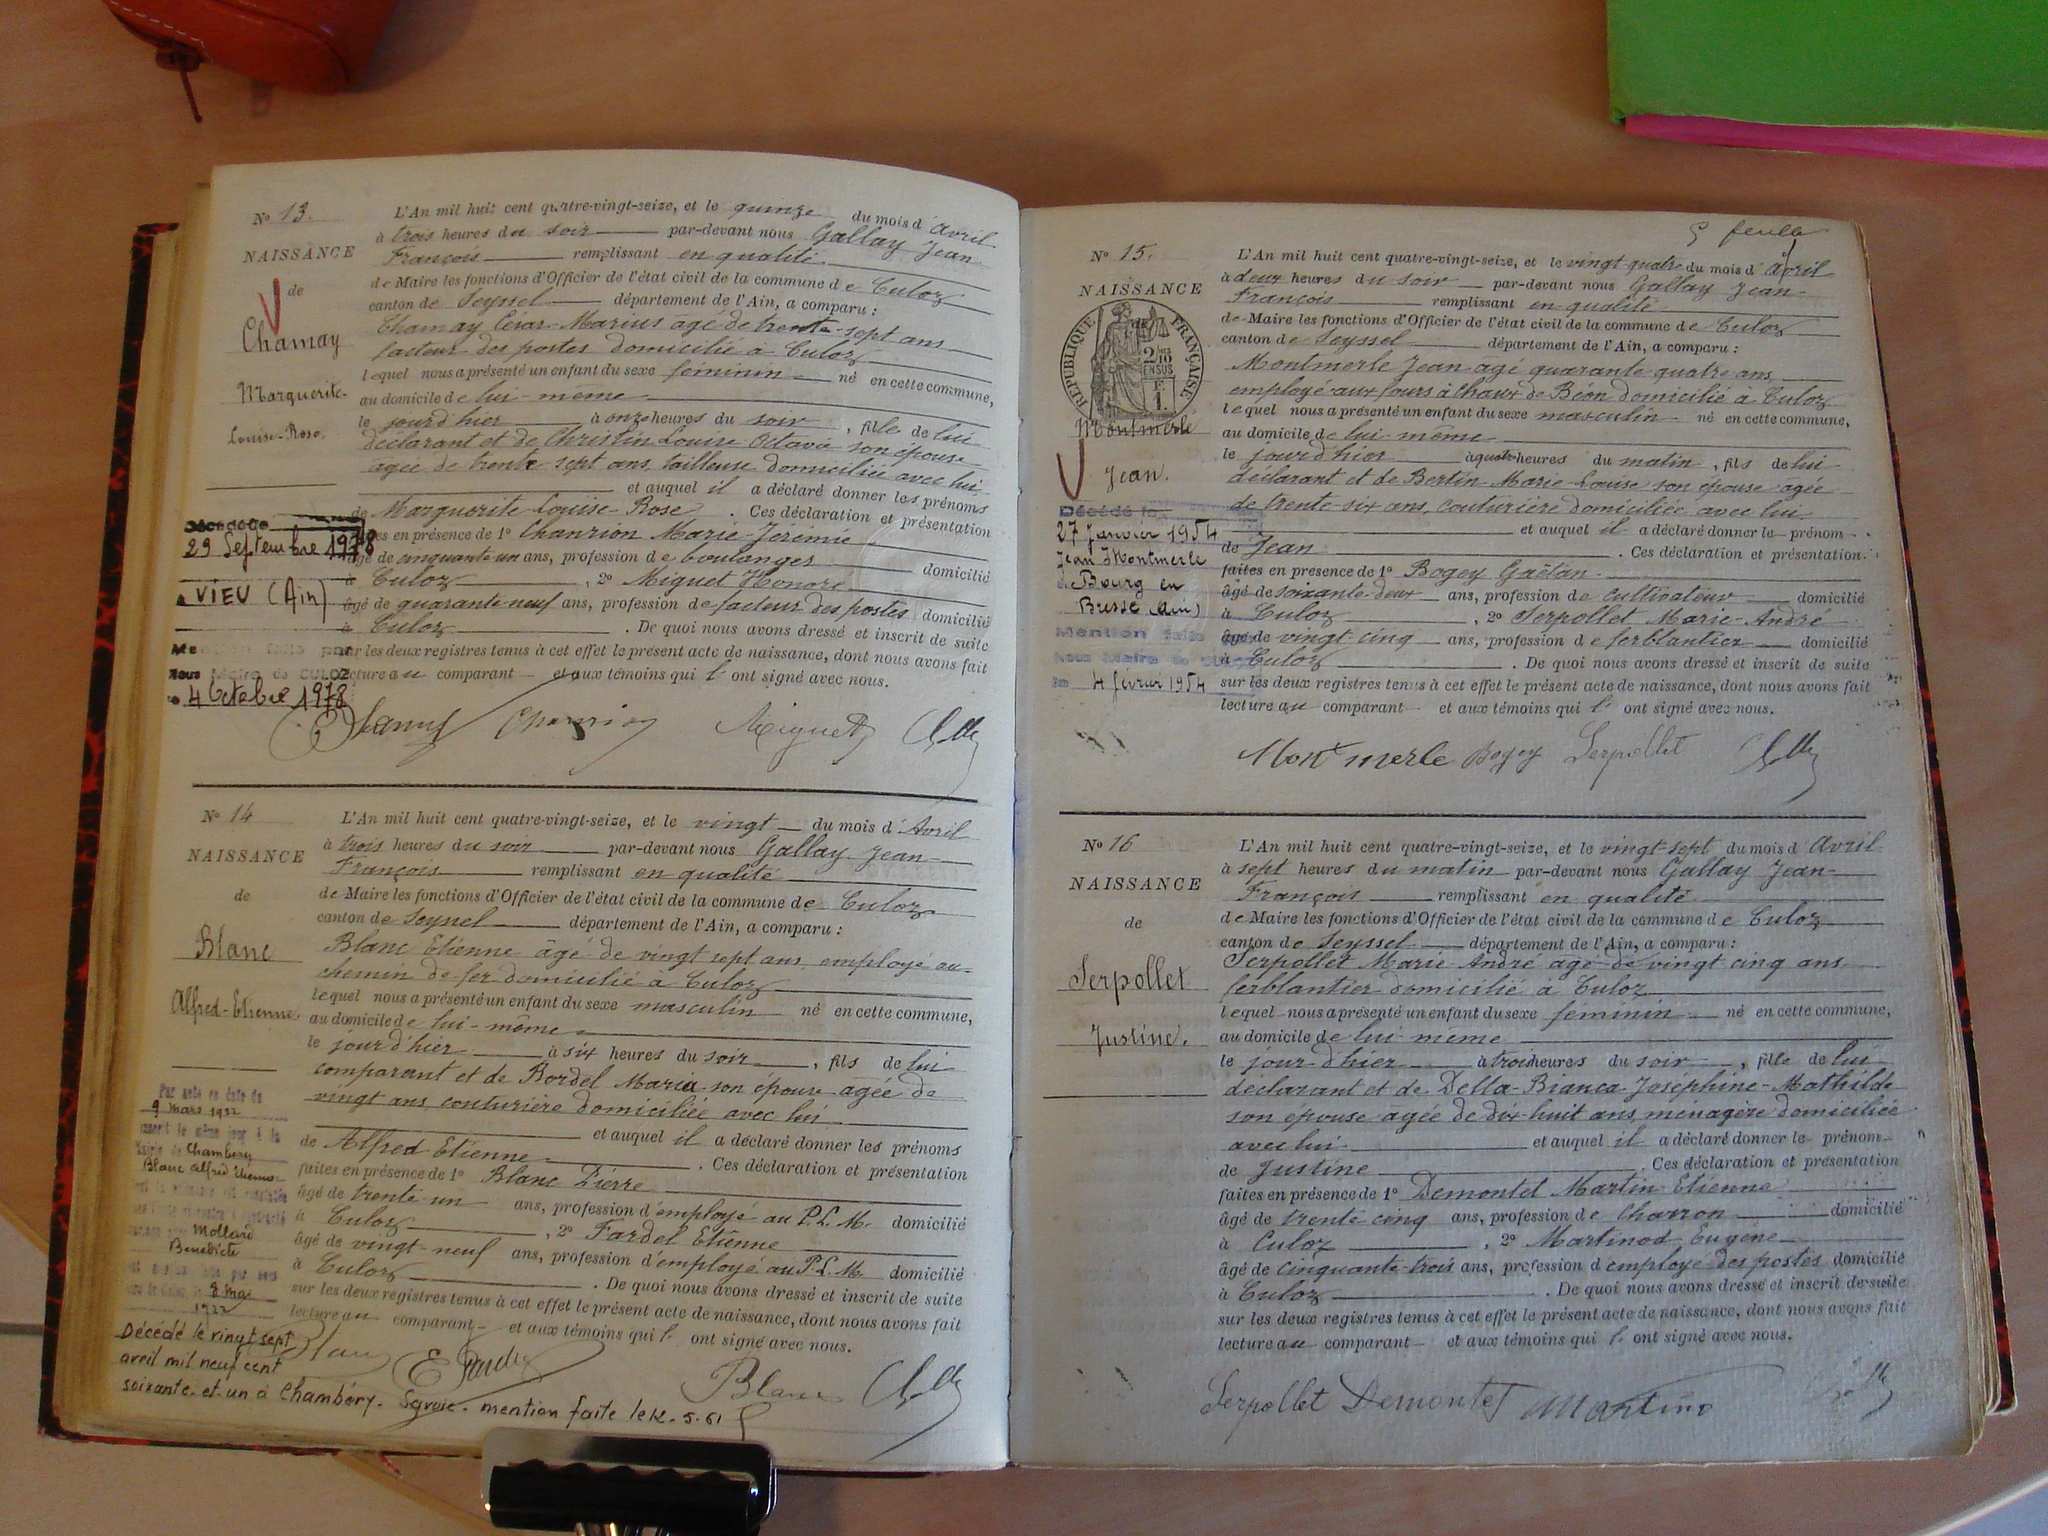 No 13.
NAISSANCE
de
Chamay
Marguerite-
Louise-Rose.
Décédée
29 Septembre 1978
à VIEU (Ain)
Mention faite par
Nous Maire de CULOZ
le 4 Octobre 1978
L'An mil huit cent quatre-vingt-seize, et le quinze du mois d'Avril
à trois heures du soir par-devant nous Gallay Jean
François remplissant en qualité
de Maire les fonctions d'Officier de l'état civil de la commune de Culoz
canton de Seyssel département de l'Ain, a comparu :
Chamay César Marius âgé de trente-sept ans
facteur des postes domicilié à Culoz
lequel nous a présenté un enfant du sexe féminin né en cette commune,
au domicile de lui-même
le jourd'hier à onze heures du soir, fille de lui
déclarant et de Christin Louise Octavie son épouse
âgée de trente sept ans, tailleuse domiciliée avec lui
et auquel il a déclaré donner les prénoms
de Marguerite Louise-Rose. Ces déclaration et présentation
faites en présence de 1° Chanrion Marie-Jérémie
âgé de cinquante un ans, profession de boulanger domicilié
à Culoz, 2° Miguet Honoré
âgé de quarante neuf ans, profession de facteur des postes domicilié
à Culoz. De quoi nous avons dressé et inscrit de suite
sur les deux registres tenus à cet effet le présent acte de naissance, dont nous avons fait
lecture au comparant et aux témoins qui l' ont signé avec nous.
Chanrion Miguet
No 14
NAISSANCE
de
Blanc
Alfred-Etienne.
Par acte en date du
9 Mars 1922
Mairie de Chambéry
Blanc Alfred Etienne
Mollard
Bénédicte
8 Mai
1922
Décédé le vingt sept
avril mil neuf cent
soixante-et-un à Chambéry. Savoie. mention faite le 12-5-61
L'An mil huit cent quatre-vingt-seize, et le vingt du mois d'Avril
à trois heures du soir par-devant nous Gallay Jean
François remplissant en qualité
de Maire les fonctions d'Officier de l'état civil de la commune de Culoz
canton de Seyssel département de l'Ain, a comparu :
Blanc Etienne âgé de vingt sept ans employé au
chemin de fer domicilié à Culoz
lequel nous a présenté un enfant du sexe masculin né en cette commune,
au domicile de lui-même
le jourd'hier à six heures du soir, fils de lui
comparant et de Bordel Maria son épouse agée de
vingt ans, couturière domiciliée avec lui
et auquel il a déclaré donner les prénoms
de Alfred Etienne. Ces déclaration et présentation
faites en présence de 1° Blanc Pierre
âgé de trente un ans, profession d'employé au P.L.M. domicilié
à Culoz, 2° Fardel Etienne
âgé de vingt-neuf ans, profession d'employé au P.L.M. domicilié
à Culoz. De quoi nous avons dressé et inscrit de suite
sur les deux registres tenus à cet effet le présent acte de naissance, dont nous avons fait
lecture au comparant et aux témoins qui l' ont signé avec nous.
Blanc
5 feuille
No 15.
NAISSANCE
RÉPUBLIQUE FRANÇAISE
Montmerle
Jean.
Décédé le
27 Janvier 1954
Jean Montmerle
à Bourg en
Bresse (Ain)
Mention faite
Nous Maire de
le 4 février 1954
L'An mil huit cent quatre-vingt-seize, et le vingt quatre du mois d'Avril
à deux heures du soir par-devant nous Gallay Jean-
François remplissant en qualité
de Maire les fonctions d'Officier de l'état civil de la commune de Culoz
canton de Seyssel département de l'Ain, a comparu :
Montmerle Jean âgé quarante quatre ans
employé aux fours à chaux de Béon domicilié à Culoz
lequel nous a présenté un enfant du sexe masculin né en cette commune,
au domicile de lui-même
le jourd'hier à quatre heures du matin, fils de lui
déclarant et de Bertin Marie-Louise son épouse agée
de trente-six ans, couturière domiciliée avec lui
et auquel il a déclaré donner le prénom
de Jean. Ces déclaration et présentation
faites en présence de 1° Bogey Gaëtan
âgé de soixante-deux ans, profession de cultivateur domicilié
à Culoz, 2° Serpollet Marie-André
âgé de vingt cinq ans, profession de ferblantier domicilié
à Culoz. De quoi nous avons dressé et inscrit de suite
sur les deux registres tenus à cet effet le présent acte de naissance, dont nous avons fait
lecture au comparant et aux témoins qui l' ont signé avec nous.
Montmerle Bogey Serpollet
No 16
NAISSANCE
de
Serpollet
Justine.
L'An mil huit cent quatre-vingt-seize, et le vingt-sept du mois d'Avril
à sept heures du matin par-devant nous Gallay Jean-
François remplissant en qualité
de Maire les fonctions d'Officier de l'état civil de la commune de Culoz
canton de Seyssel département de l'Ain, a comparu :
Serpollet Marie-André âgé de vingt cinq ans
ferblantier domicilié à Culoz
lequel nous a présenté un enfant du sexe féminin né en cette commune,
au domicile de lui-même
le jour d'hier à trois heures du soir, fille de lui
déclarant et de Della-Bianca Joséphine-Mathilde
son épouse agée de dix-huit ans, ménagère domiciliée
avec lui et auquel il a déclaré donner le prénom
de Justine. Ces déclaration et présentation
faites en présence de 1° Demontet Martin-Etienne
âgé de trente cinq ans, profession de charron domicilié
à Culoz, 2° Martinod Eugène
âgé de cinquante-trois ans, profession d'employé des postes domicilié
à Culoz. De quoi nous avons dressé et inscrit de suite
sur les deux registres tenus à cet effet le présent acte de naissance, dont nous avons fait
lecture au comparant et aux témoins qui l' ont signé avec nous.
Serpollet Demontet Martino